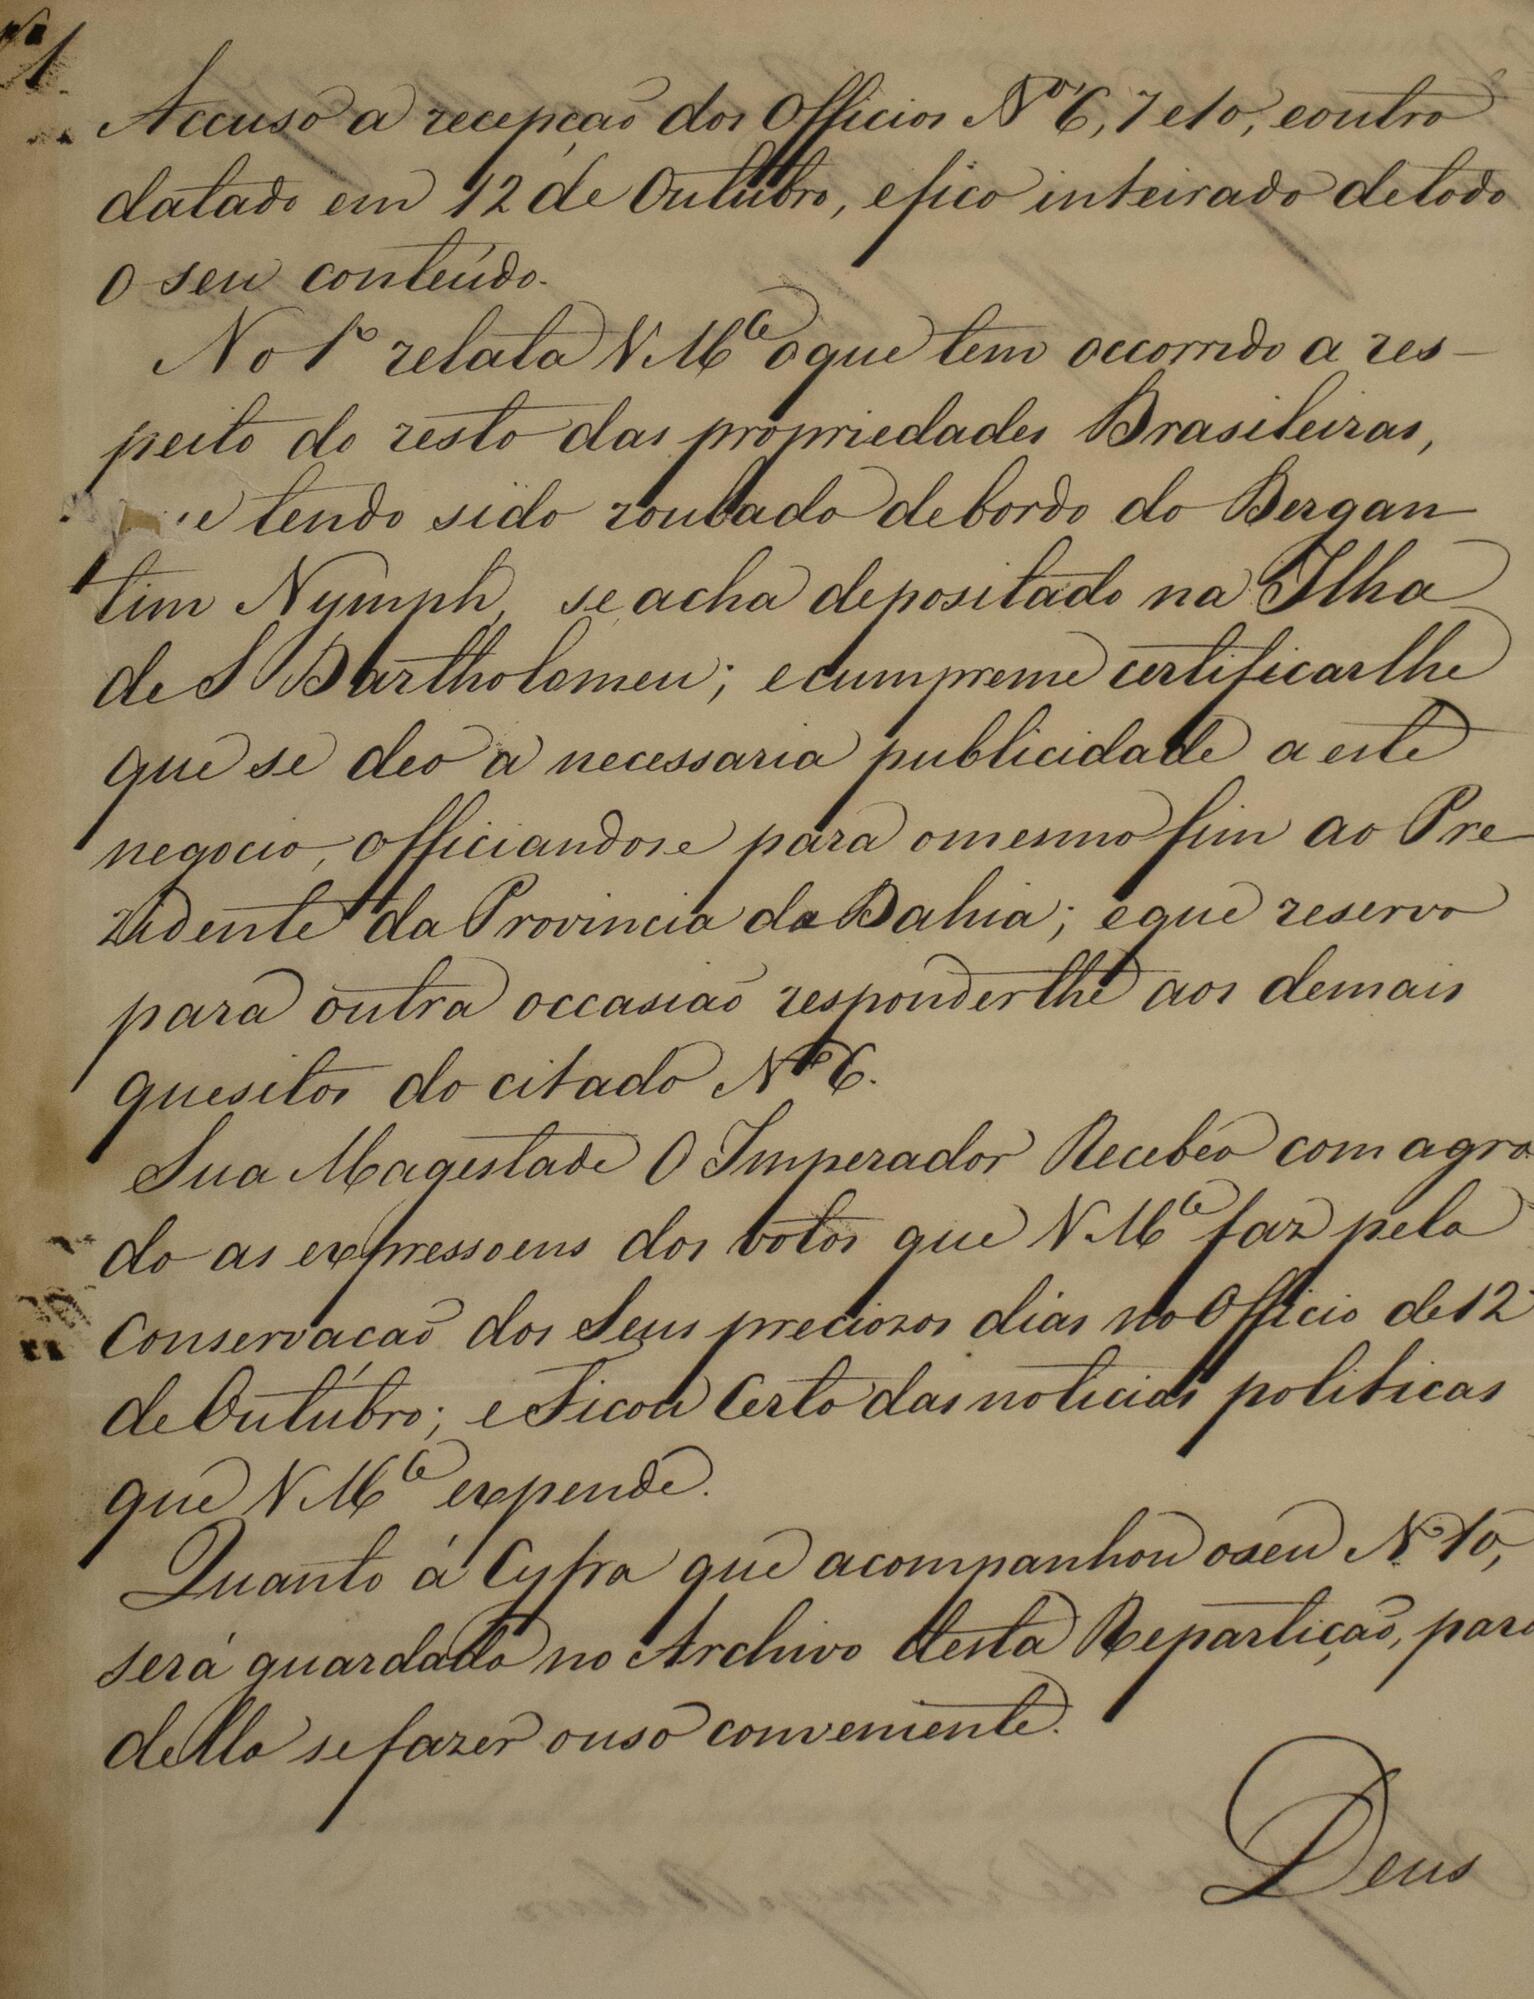 1
Accuso a recepção dos Officios Nos 6, 7 e 10, e outro
datado em 12 de Outubro, e fico inteirado de todo
o seu conteúdo.
No 1o relata VMce o que tem occorrido a res-
peito do resto das propriedades Brasileiras,
e tendo sido roubado de bordo do Bergan
tim Nymph, se acha depositado na Ilha
de S Bartholomeu; e cumpreme certificarlhe
que se deo a necessaria publicidade a este
negocio, officiandose para o mesmo fim ao Pre
zidente da Provincia da Bahia; e que reservo
para outra occasiaõ responderlhe aos demais
quesitos do citado No 6.
Sua Magestade O Imperador Recebéo com agra
do as expressoens dos votos que VMce faz pela
Conservacaõ dos Seus preciozos dias no Officio de 12
de Outúbro; e Ficou Certo das noticias politicas
que VMce expende.
Quanto á Cyfra que acompanhou o seu No 10,
será guardada no Archivo desta Repartiçaõ, para
della se fazer o uso conveniente.
Deus